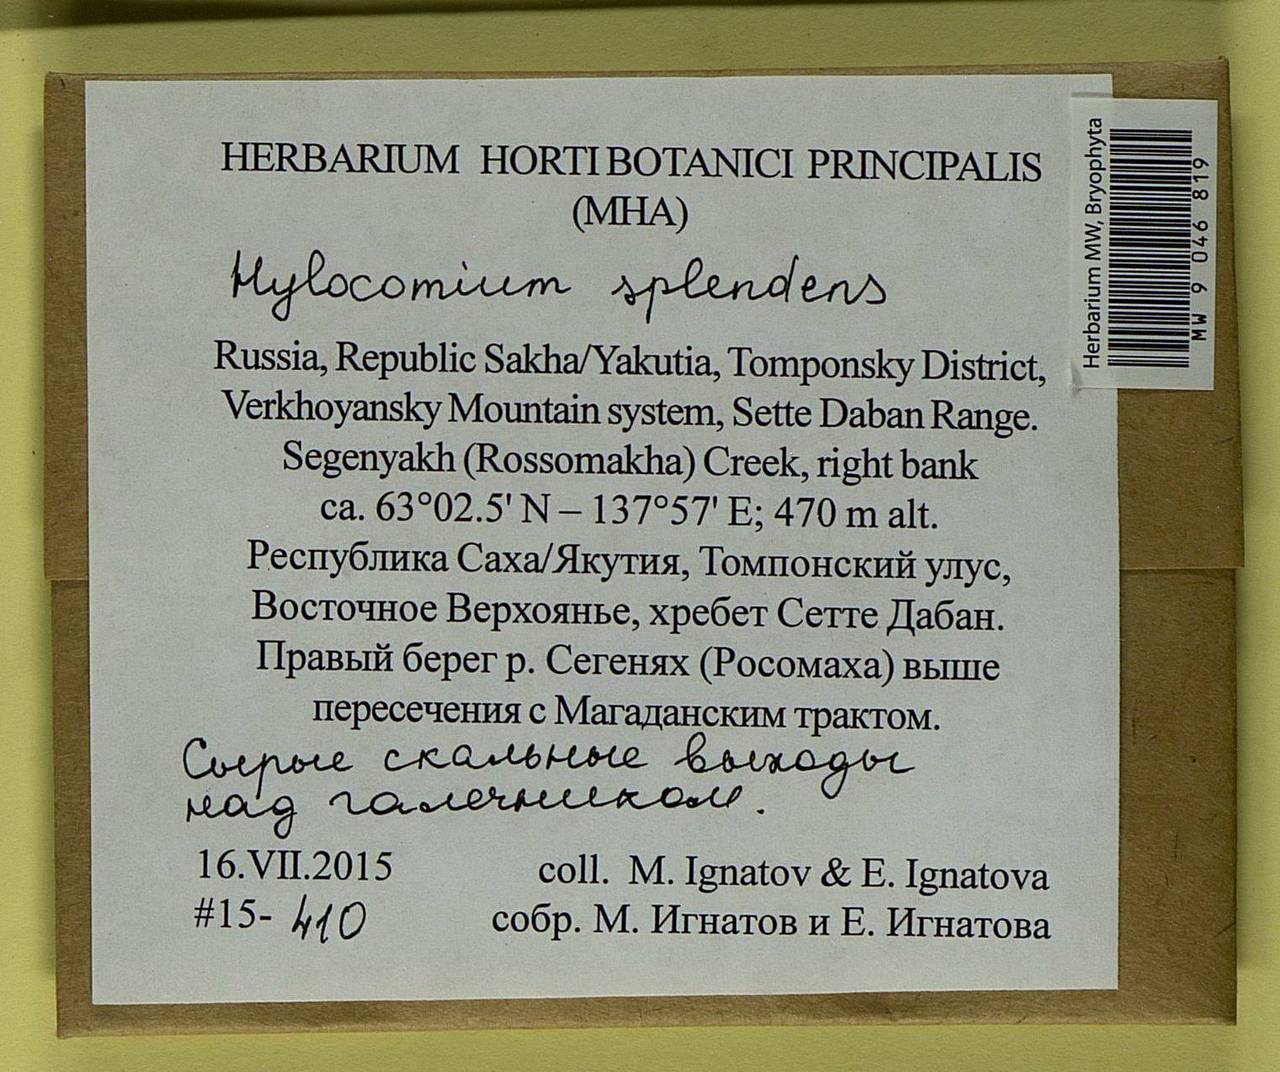 HERBARIUM HORTI BOTANICI PRINCIPALIS
(MHA)
Hylocomium splendens
Russia, Republic Sakha/Yakutia, Tomponsky District,
Verkhoyansky Mountain system, Sette Daban Range.
Segenyakh (Rossomakha) Creek, right bank
ca. 63°02.5' N – 137°57' E; 470 m alt.
Республика Саха/Якутия, Томпонский улус,
Восточное Верхоянье, хребет Сетте Дабан.
Правый берег р. Сегенях (Росомаха) выше
пересечения с Магаданским трактом.
Сырые скальные выходы
над галечником.
16.VII.2015 coll. M. Ignatov & E. Ignatova
#15- 410 собр. М. Игнатов и Е. Игнатова
Herbarium MW, Bryophyta
MW 9 046 819